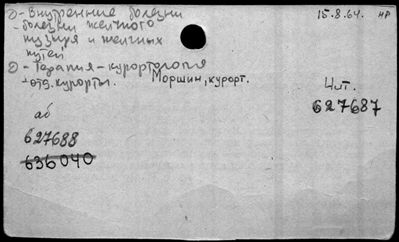 Э-Внутренние болезни
-болезни желчного
пузыря и желчных
путей
Э-Терапия-курортология
-отд. курорты.
Моршин, курорт.
15.8.64. НР
Чит.
627687
аб
627688
636040